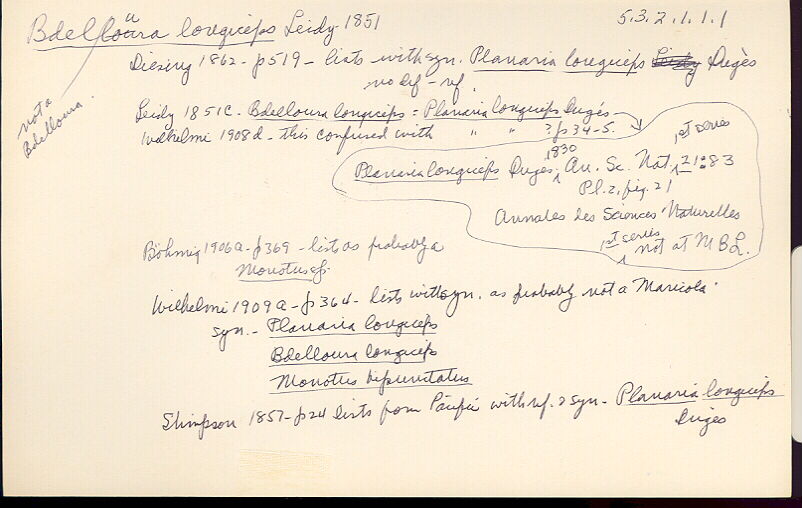 Bdelloura longiceps Leidy 1851
5.3.2.1.1.1
u
not a
Bdelloura.
Diesing 1862 - p519 - lists with syn. Planaria longiceps Leidy Dugès
no def - ref.
Leidy 1851c. Bdelloura longiceps = Planaria longiceps Dugés
Wilhelmi 1908d - this confused with " " ? p34-5.
1st series
Planaria longiceps Dugés, 1830 An. Sc. Nat. 21:83
Pl. 2, fig. 21
Annales des Sciences Naturelles
1st series
not at MBL.
Böhmig 1906a - p369 - lists as probably a
Monotus sp.
Wilhelmi 1909a - p364 - lists with syn. as probably not a Maricola.
syn. - Planaria longiceps
Bdelloura longiceps
Monotus bipunctatus
Stimpson 1857 - p24 lists from Pacific with ref. & syn - Planaria longiceps
Dugés